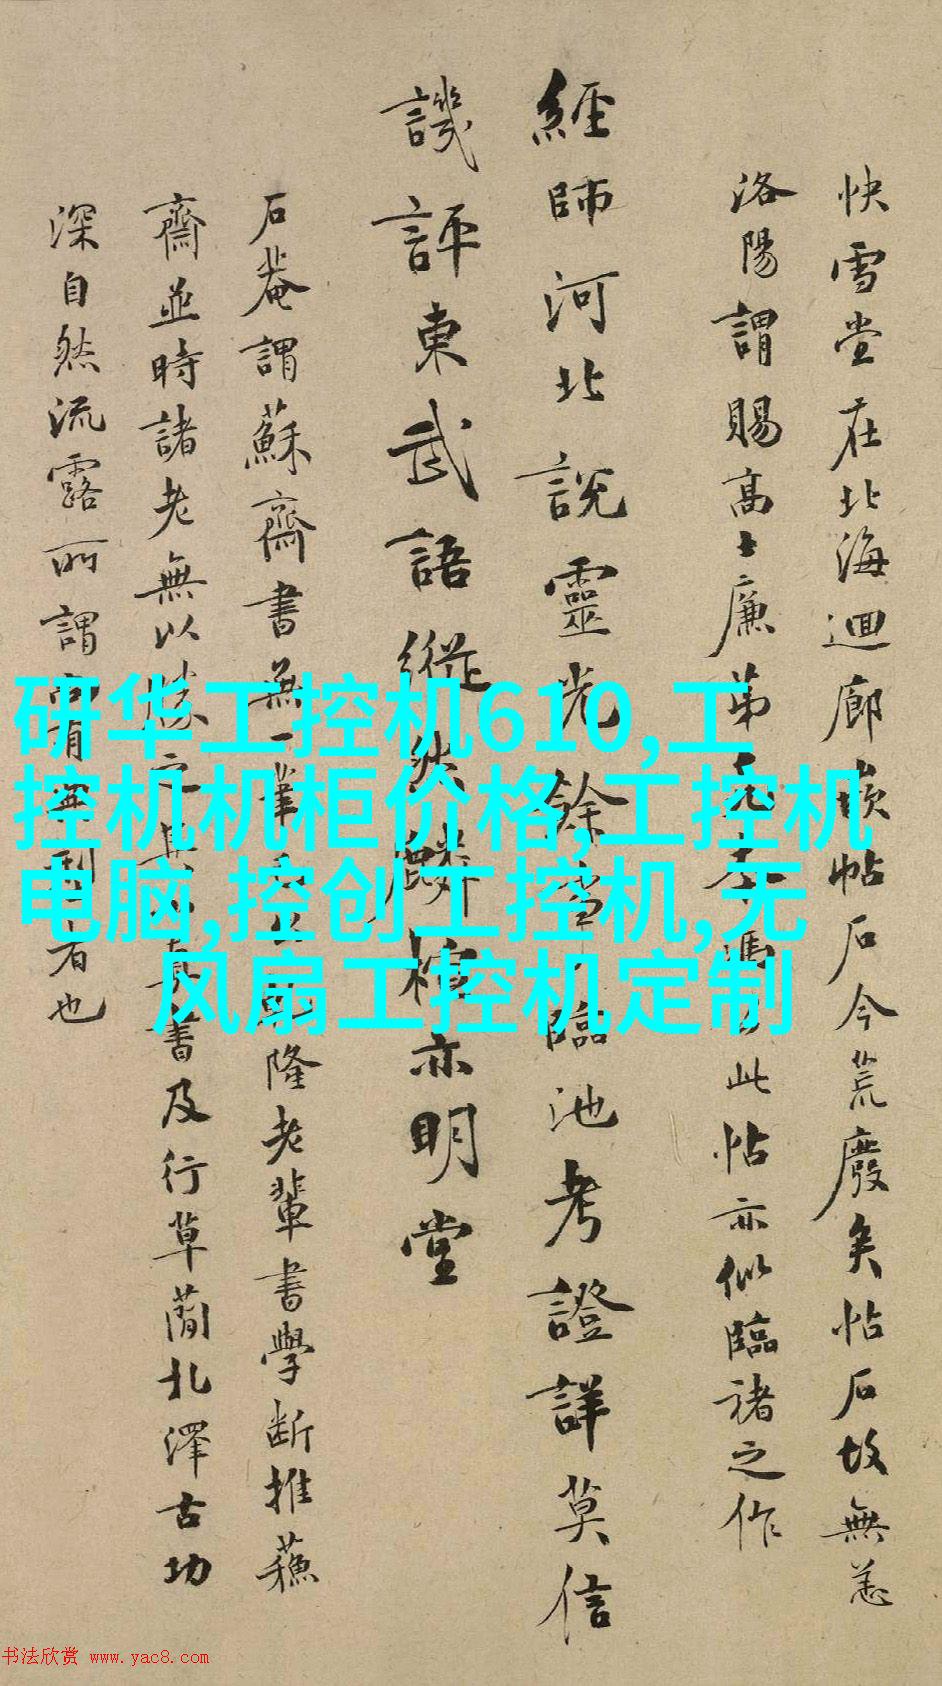 快雪堂在北海迴廊嵌帖石今荒廢矣帖石故無恙
洛陽謂賜高士廉弟此帖亦似臨諸之作
經師河北說靈光餘事臨池考證詳莫信
譏評東武語縱然麟楦亦明堂
石菴謂蘇齋書無一筆隆老輩書學斷推蘇
齋並時諸老無以勝之其真書及行草蘭北澤古功
深自然流露所謂者也
研华工控机610,工
控机机柜价格,工控机
电脑,控创工控机,无
风扇工控机定制
书法欣赏 www.yac8.com